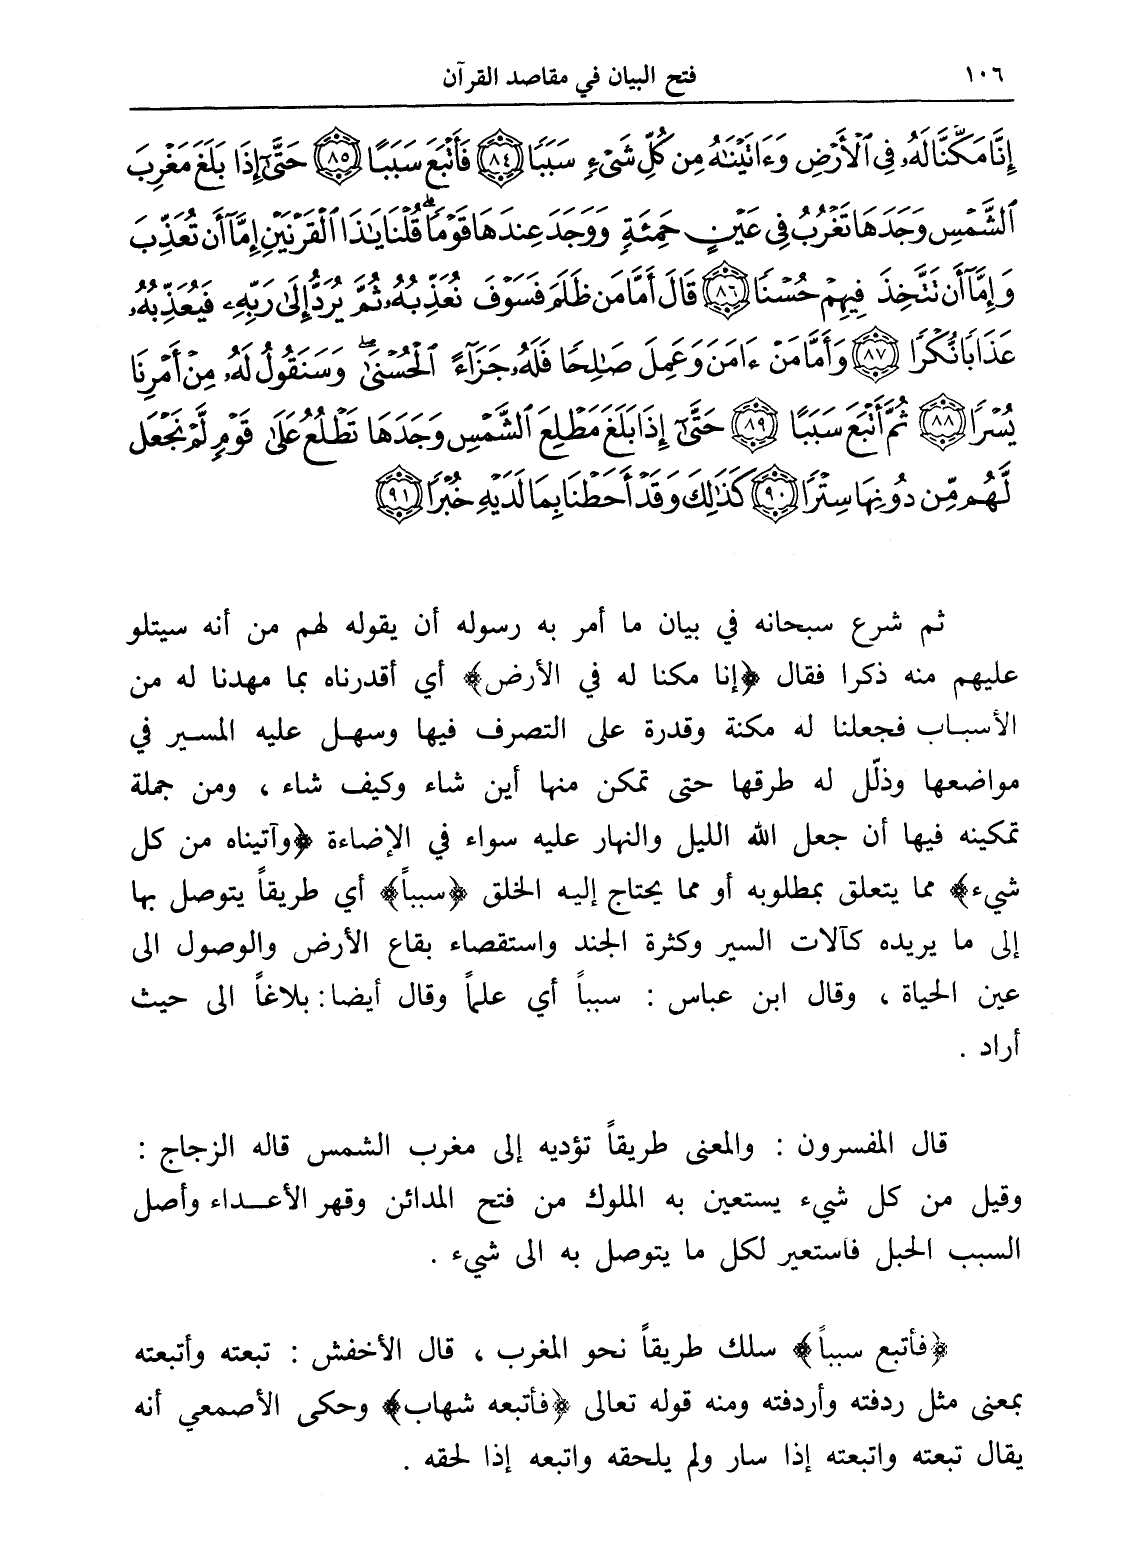 ١٠٦ فتح البيان في مقاصد القرآن
إِنَّا مَكَّنَّا لَهُۥ فِى ٱلْأَرْضِ وَءَاتَيْنَٰهُ مِن كُلِّ شَىْءٍ سَبَبًا ٨٤ فَأَتْبَعَ سَبَبًا ٨٥ حَتَّىٰٓ إِذَا بَلَغَ مَغْرِبَ
ٱلشَّمْسِ وَجَدَهَا تَغْرُبُ فِى عَيْنٍ حَمِئَةٍ وَوَجَدَ عِندَهَا قَوْمًا ۗ قُلْنَا يَٰذَا ٱلْقَرْنَيْنِ إِمَّآ أَن تُعَذِّبَ
وَإِمَّآ أَن تَتَّخِذَ فِيهِمْ حُسْنًا ٨٦ قَالَ أَمَّا مَن ظَلَمَ فَسَوْفَ نُعَذِّبُهُۥ ثُمَّ يُرَدُّ إِلَىٰ رَبِّهِۦ فَيُعَذِّبُهُۥ
عَذَابًا نُّكْرًا ٨٧ وَأَمَّا مَنْ ءَامَنَ وَعَمِلَ صَٰلِحًا فَلَهُۥ جَزَآءً ٱلْحُسْنَىٰ ۖ وَسَنَقُولُ لَهُۥ مِنْ أَمْرِنَا
يُسْرًا ٨٨ ثُمَّ أَتْبَعَ سَبَبًا ٨٩ حَتَّىٰٓ إِذَا بَلَغَ مَطْلِعَ ٱلشَّمْسِ وَجَدَهَا تَطْلُعُ عَلَىٰ قَوْمٍ لَّمْ نَجْعَل
لَّهُم مِّن دُونِهَا سِتْرًا ٩٠ كَذَٰلِكَ وَقَدْ أَحَطْنَا بِمَا لَدَيْهِ خُبْرًا ٩١
ثم شرع سبحانه في بيان ما أمر به رسوله أن يقوله لهم من أنه سيتلو
عليهم منه ذكرا فقال ﴿إنا مكنا له في الأرض﴾ أي أقدرناه بما مهدنا له من
الأسباب فجعلنا له مكنة وقدرة على التصرف فيها وسهل عليه المسير في
مواضعها وذلّل له طرقها حتى تمكن منها أين شاء وكيف شاء ، ومن جملة
تمكينه فيها أن جعل الله الليل والنهار عليه سواء في الإضاءة ﴿وآتيناه من كل
شيء﴾ مما يتعلق بمطلوبه أو مما يحتاج إليه الخلق ﴿سبباً﴾ أي طريقاً يتوصل بها
إلى ما يريده كآلات السير وكثرة الجند واستقصاء بقاع الأرض والوصول الى
عين الحياة ، وقال ابن عباس : سبباً أي علماً وقال أيضا : بلاغاً الى حيث
أراد .
قال المفسرون : والمعنى طريقاً تؤديه إلى مغرب الشمس قاله الزجاج :
وقيل من كل شيء يستعين به الملوك من فتح المدائن وقهر الأعداء وأصل
السبب الحبل فاستعير لكل ما يتوصل به الى شيء .
﴿فأتبع سبباً﴾ سلك طريقاً نحو المغرب ، قال الأخفش : تبعته وأتبعته
بمعنى مثل ردفته وأردفته ومنه قوله تعالى ﴿فأتبعه شهاب﴾ وحكى الأصمعي أنه
يقال تبعته واتبعته إذا سار ولم يلحقه واتبعه إذا لحقه .